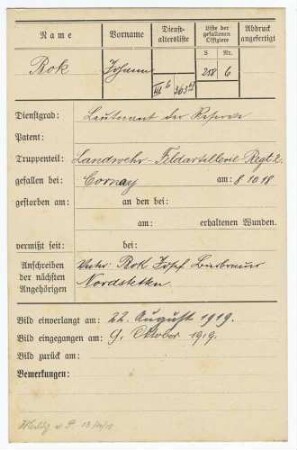 Name Vorname Dienstaltersliste Liste der gefallenen Offiziere Abdruck angefertigt
S Nr.
Bok Johann 218 6
Dienstgrad: Leutnant der Reserve
Patent:
Truppenteil: Landwehr-Feldartillerie-Regt. 2.
gefallen bei: Cornay am: 8 10 18
gestorben am: an den bei:
am: erhaltenen Wunden.
vermißt seit: bei:
Anschreiben der nächsten Angehörigen Vater Bok Josef
Nordstetten.
Bild einverlangt am: 22. August 1919.
Bild eingegangen am: 9. Oktober 1919.
Bild zurück am:
Bemerkungen: